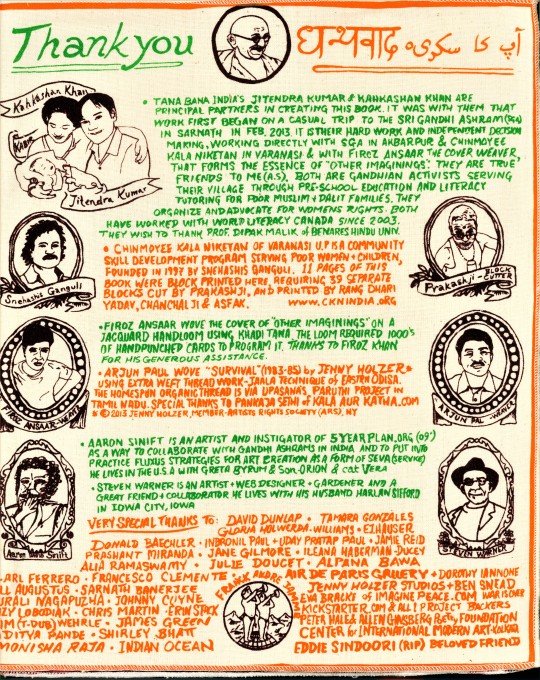 Thank you
धन्यवाद
آپ کا سکریہ
Kahkashan Khan
KABIR
Jitendra Kumar
• TANA BANA INDIA'S JITENDRA KUMAR & KAHKASHAN KHAN ARE
PRINCIPAL PARTNERS IN CREATING THIS BOOK. IT WAS WITH THEM THAT
WORK FIRST BEGAN ON A CASUAL TRIP TO THE SRI GANDHI ASHRAM (SGA)
IN SARNATH IN FEB, 2013. IT IS THEIR HARD WORK AND INDEPENDENT DECISION
MAKING, WORKING DIRECTLY WITH SGA IN AKBARPUR & CHINMOYEE
KALA NIKETAN IN VARANASI & WITH FIROZ ANSAAR THE COVER WEAVER,
THAT FORMS THE ESSENCE OF 'OTHER IMAGININGS'. THEY ARE TRUE
FRIENDS TO ME (A.S.). BOTH ARE GANDHIAN ACTIVISTS SERVING
THEIR VILLAGE THROUGH PRE-SCHOOL EDUCATION AND LITERACY
TUTORING FOR POOR MUSLIM + DALIT FAMILIES. THEY
ORGANIZE AND ADVOCATE FOR WOMENS RIGHTS. BOTH
HAVE WORKED WITH WORLD LITERACY CANADA SINCE 2003.
THEY WISH TO THANK PROF. DIPAK MALIK OF BENARES HINDU UNIV.
Snehashis Ganguli
• CHINMOYEE KALA NIKETAN OF VARANASI U.P. IS A COMMUNITY
SKILL DEVELOPMENT PROGRAM SERVING POOR WOMEN + CHILDREN,
FOUNDED IN 1997 BY SNEHASHIS GANGULI. 11 PAGES OF THIS
BOOK WERE BLOCK PRINTED HERE, REQUIRING 39 SEPARATE
BLOCKS CUT BY PRAKASHJI, AND PRINTED BY RANG DHARI
YADAV, CHANCHAL JI & ASFAK. WWW.CKNINDIA.ORG
Prakash ji - BLOCK CUTTER
• FIROZ ANSAAR WOVE THE COVER OF "OTHER IMAGININGS" ON A
JACQUARD HANDLOOM USING, KHADI TANA. THE LOOM REQUIRED 1000'S
OF HANDPUNCHED CARDS TO PROGRAM IT. THANKS TO FIROZ KHAN
FOR HIS GENEROUS ASSISTANCE.
FIROZ ANSAAR-WEAVER
• ARJUN PAUL WOVE "SURVIVAL" (1983-85) by JENNY HOLZER*
USING EXTRA WEFT THREAD WORK-JAALA TECHNIQUE OF EASTERN ODISA.
THE HOMESPUN ORGANIC THREAD IS VIA UPASANA'S PARUTHI PROJECT IN
TAMIL NADU. SPECIAL THANKS TO PANKAJA SETHI OF KALA AUR KATHA.COM
* © 2013 JENNY HOLZER, MEMBER-ARTISTS RIGHTS SOCIETY (ARS), NY
ARJUN PAL - WEAVER
• AARON SINIFT IS AN ARTIST AND INSTIGATOR OF 5YEARPLAN.ORG (09')
AS A WAY TO COLLABORATE WITH GANDHI ASHRAMS IN INDIA, AND TO PUT INTO
PRACTICE FLUXUS STRATEGIES FOR ART CREATION AS A FORM OF SEVA (SERVICE)
HE LIVES IN THE U.S.A WITH GRETA BYRUM & SON-ORION & cat VERA
Aaron Das Sinift
• STEVEN WARNER IS AN ARTIST + WEB DESIGNER + GARDENER AND A
GREAT FRIEND + COLLABORATOR. HE LIVES WITH HIS HUSBAND HARLAN SIFFORD
IN IOWA CITY, IOWA
STEVEN WARNER
VERY SPECIAL THANKS TO: DAVID DUNLAP • TAMARA GONZALES
GLORIA HOLWERDA-WILLIAMS • EJ HAUSER
DONALD BAECHLER • INDRONIL PAUL + UDAY PRATAP PAUL • JAMIE REID
PRASHANT MIRANDA • JANE GILMORE • ILEANA HABERMAN-DUCEY
ALIA RAMASWAMY • JULIE DOUCET • ALPANA BAWA
ARL FERRERO • FRANCESCO CLEMENTE
FRANK ANDRE
AIR DE PARIS GALLERY • DOROTHY IANNONE
LL AUGUSTUS • SARNATH BANERJEE
JENNY HOLZER STUDIOS + BEN SNEAD
URALI NAGAPUZHA • JOHNNY COYNE
EVA BRACKE of IMAGINE PEACE.COM WAR IS OVER
ZY LOBODIAK • CHRIS MARTIN • ERIN STACK
KICKSTARTER.COM & ALL PROJECT BACKERS
IM (T-DUB) WEHRLE • JAMES GREEN
PETER HALE & ALLEN GINSBERG FOUNDATION
ADITYA PANDE • SHIRLEY BHATT
CENTER for INTERNATIONAL MODERN ART-KOLKATA
MONISHA RAJA • INDIAN OCEAN
EDDIE SINDOORI (RIP) BELOVED FRIEND